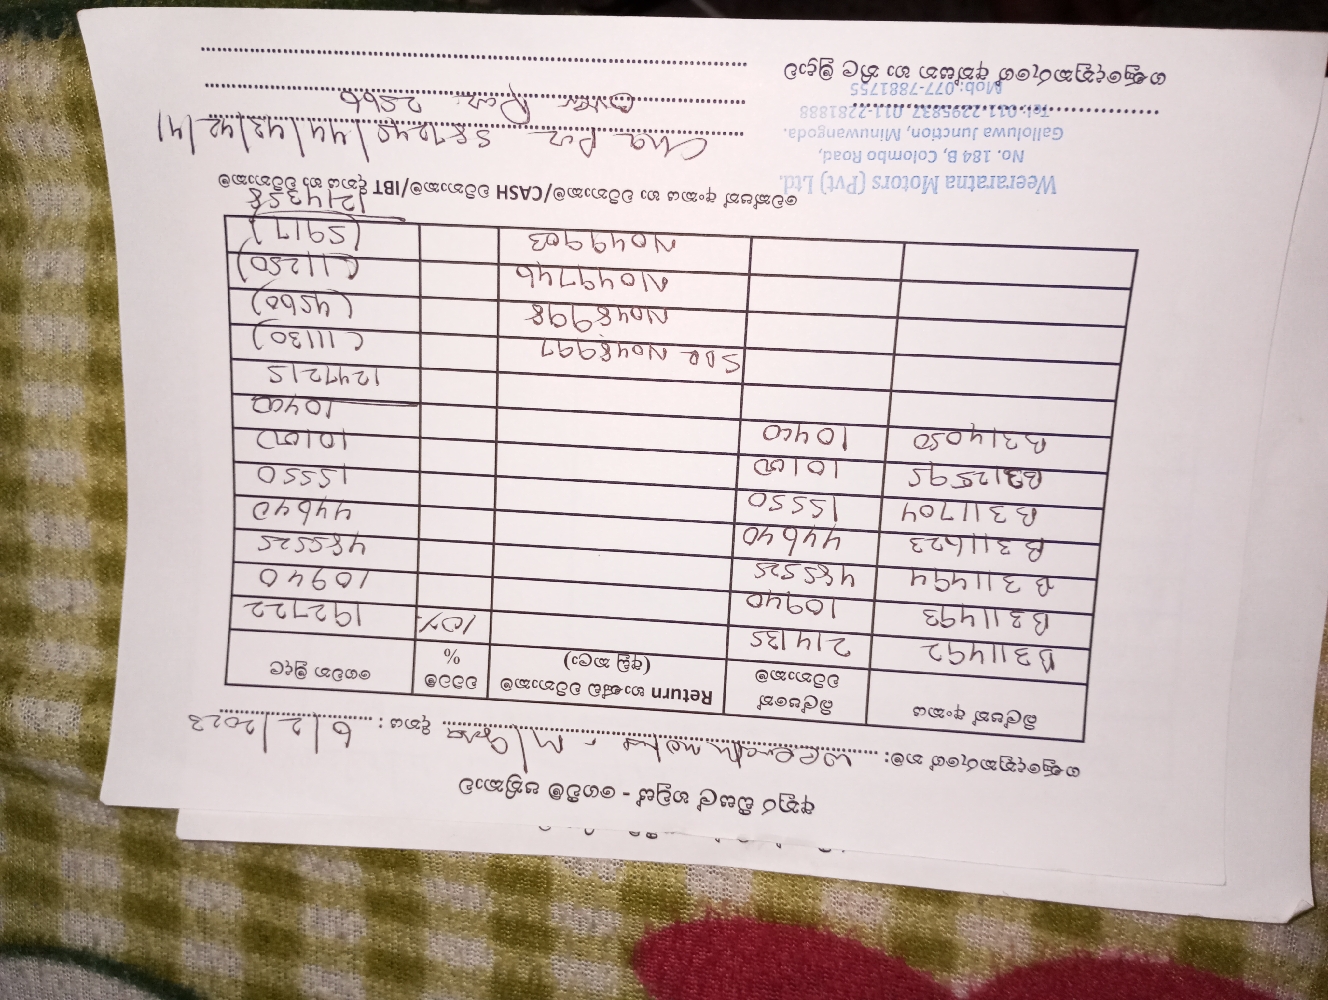 අසුර ටයල් හවුස් - ගෙවීම් පත්‍රිකාව
ගනුදෙනුකරුගේ නම: දිනය : 6/2/2023
බිල්පත් අංකය බිල්පතේ වටිනාකම Return භාණ්ඩ වටිනාකම (අඩු කලා) වට්ටම් % ගෙවන මුදල
B311492 214135 10% 192722
B311493 10940 10940
B311494 485525 485525
B311623 44640 44640
B311704 15550 15550
B312595 10100 10100
B314050 10400 10400
1247215
SRR N048997 (11130)
N048998 (4560)
N049746 (11250)
N049903 (5917)
චෙක්පත් අංකය හා වටිනාකම/CASH වටිනාකම/IBT දිනය හා වටිනාකම 1214358
Weeraratna Motors (Pvt) Ltd.
No. 184 B, Colombo Road,
Galloluwa Junction, Minuwangoda.
Tel: 011-2295837, 011-2281888
Mob: 077-7881755
587245/44/43/42/41
2566
ගනුදෙනුකරුගේ අත්සන හා නිල මුද්‍රාව